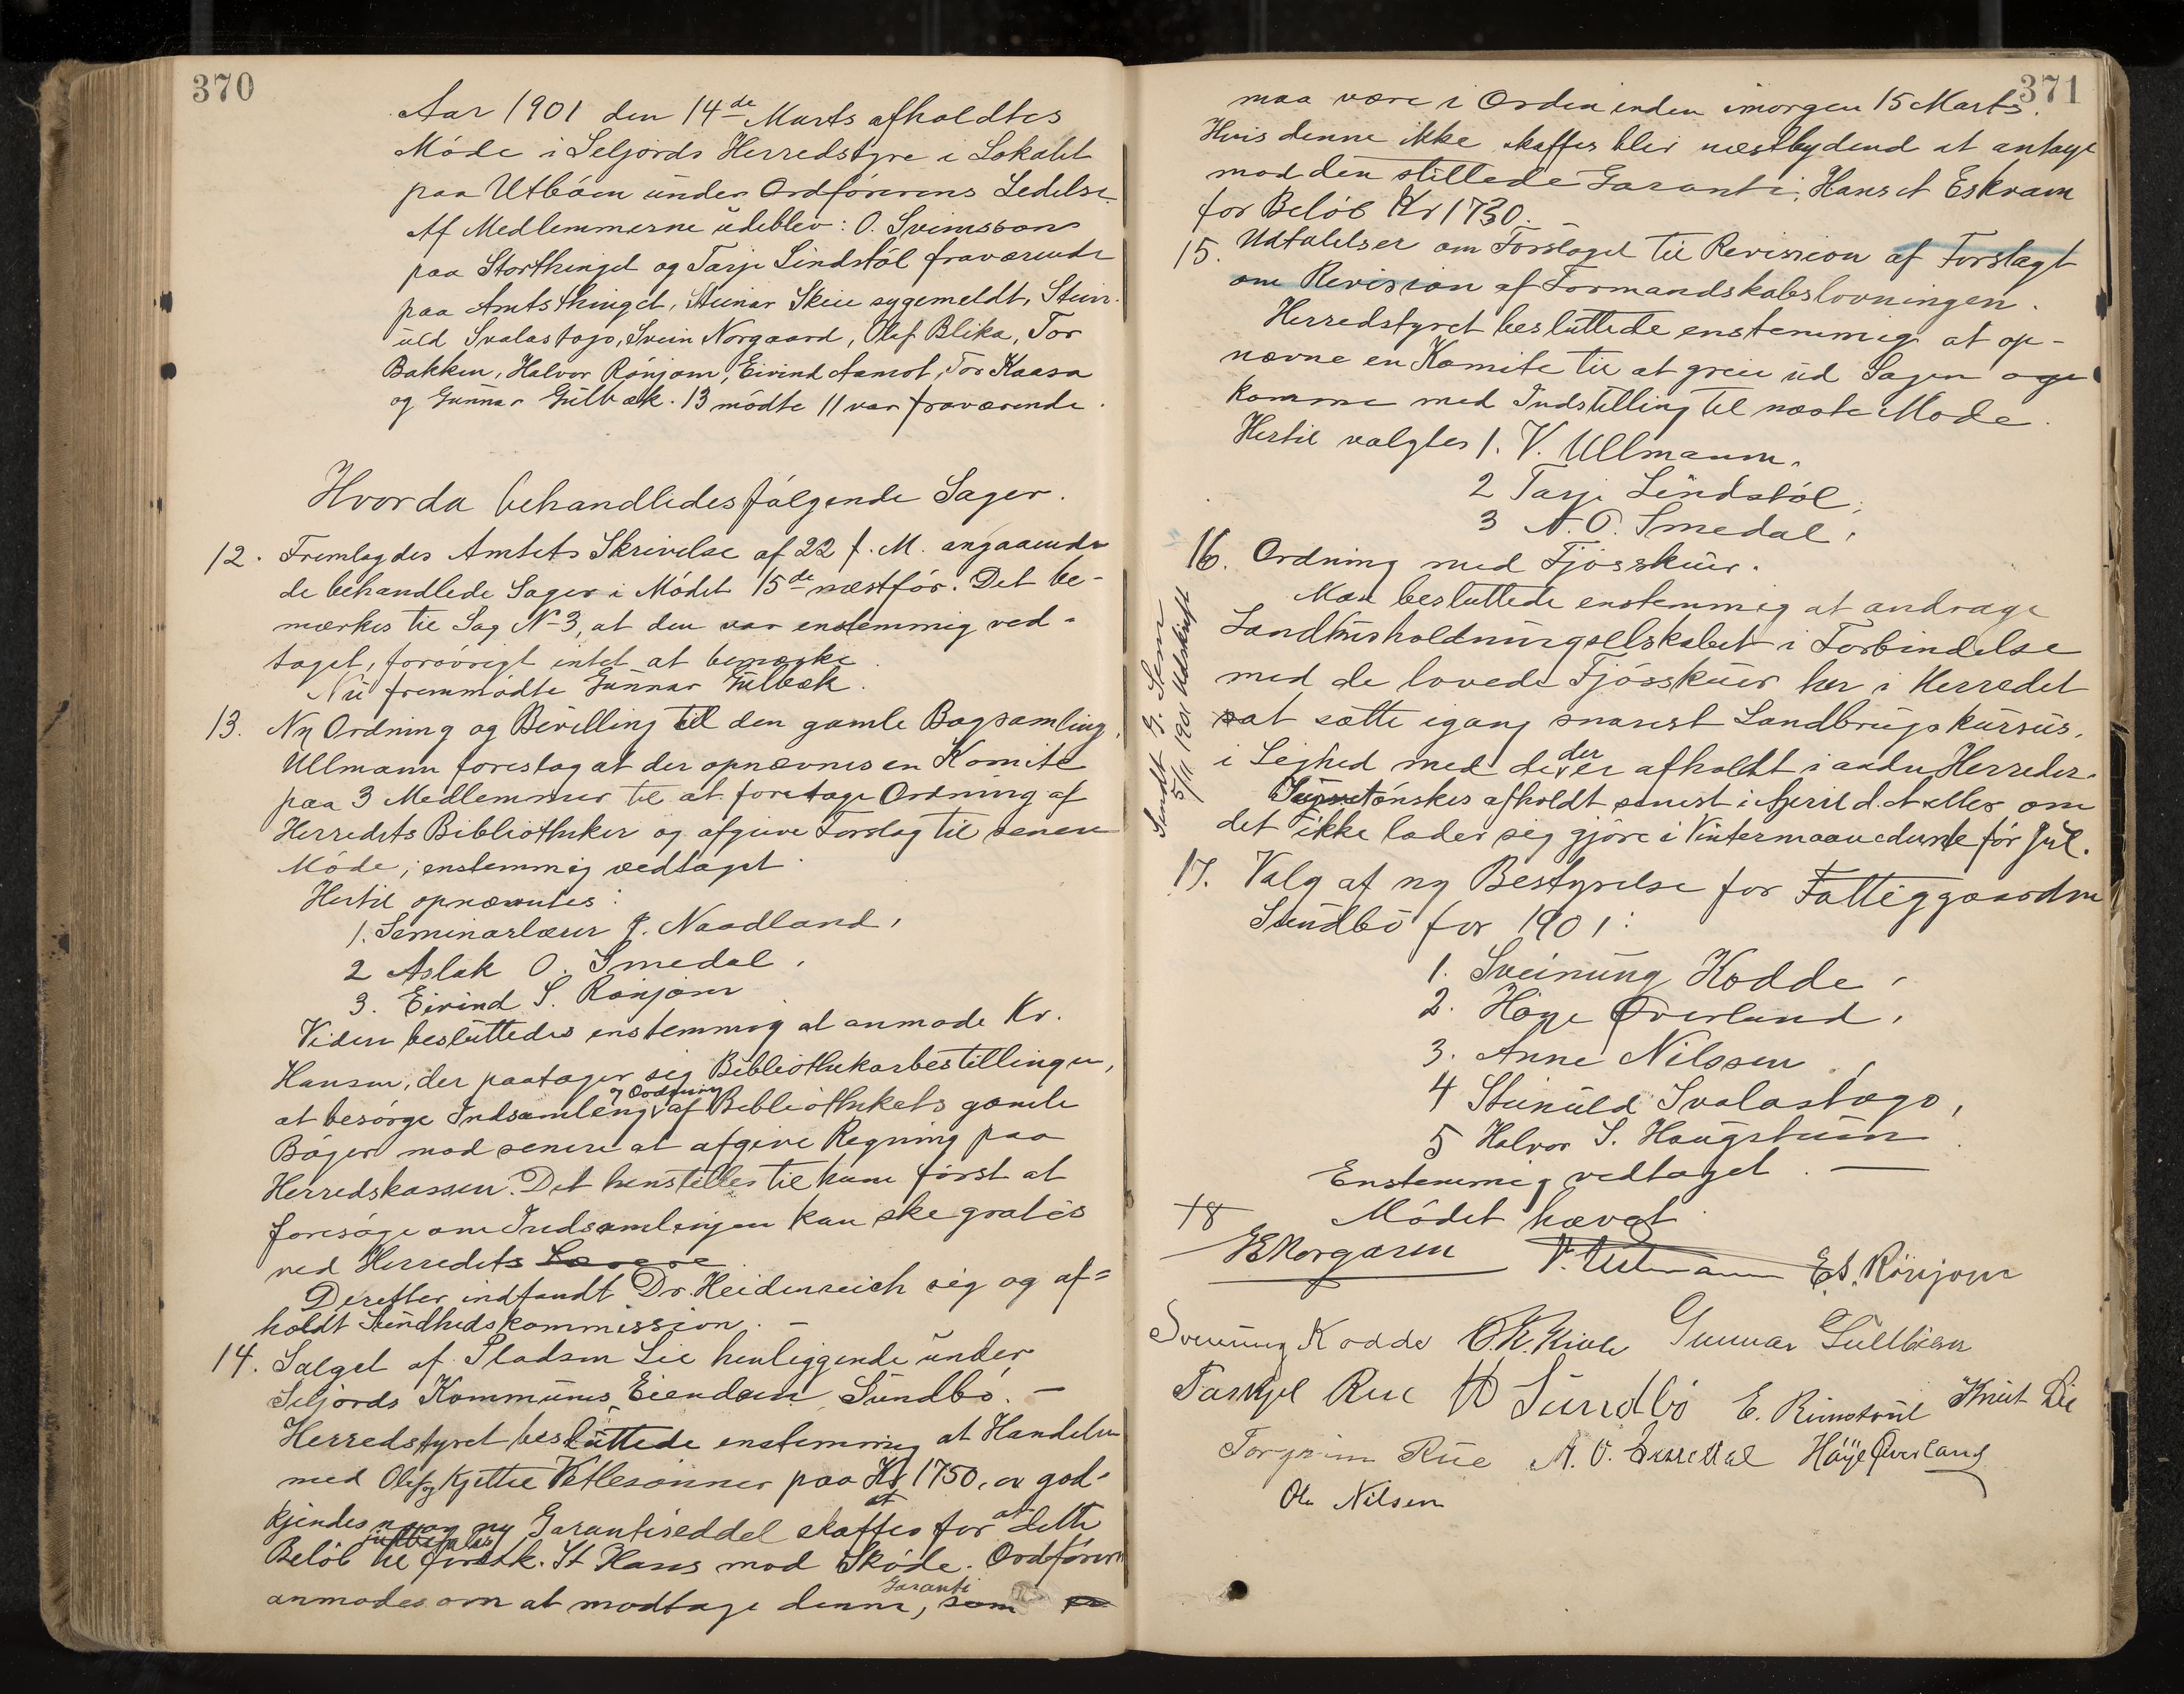 370
Aar 1901 den 14de Marts afholdtes
Møde i Seljords Herredstyre i Lokalet
paa Utbøen under Ordførerens Ledelse.
Af Medlemmerne udeblev: O. Sveinsson
paa Storthinget og Tarje Lindstøl fraværende
paa Amtsthinget, Steinar Skeie sygemeldt, Stein-
uld Svalastogo, Svein Norgaard, Olaf Blika, Tor
Bakken, Halvor Rönjom, Eivind Aamot, Tor Kaasa
og Gunnar Gulbæk. 13 mødte 11 var fraværende.
Hvorda behandledes følgende Sager.
12. Fremlagdes Amtets Skrivelse af 22 f. M. angaaende
de behandlede Sager i Mødet 15de næstfør. Det be-
mærkes til Sag N-3, at den var enstemmig ved-
taget, forøvrigt intet at bemærke.
Nu fremmødte Gunnar Gulbæk.
13. Ny Ordning og Bevilling til den gamle Bogsamling.
Ullmann foreslog at der opnævnes en Komite
paa 3 Medlemmer til at foretage Ordning af
Herredets Bibliotheker og afgive Forslag til senere
Møde; enstemmig vedtaget.
Hertil opnævntes:
1. Seminarlærer J. Naadland,
2 Aslak O. Smedal,
3. Eivind S. Rønjom
Videre besluttedes enstemmig at anmode Kr.
Hansen, der paatager sig Bibliothekarbestillingen,
at besørge Indsamling og Ordning af Bibliothekets gamle
Bøger mod senere at afgive Regning paa
Herredskassen. Det henstilles til ham først at
forsøge om Indsamlingen kan ske gratis
ved Herredets Lærere.
Derefter indfandt Dr. Heidenreich sig og af=
holdt Sundhedskommission. -
14. Salget af Pladsen Lie henliggende under
Seljords Kommunes Eiendom Sundbø. -
Herredstyret besluttede enstemmig at Handelen
med Olaf og Kjettil Vetlesønner paa Kr 1750, er god-
kjendes ny Garantiseddel skaffes for at dette
Beløb til førstk. St Hans mod Skøde. Ordføreren
anmodes om at modtage denne, Garanti som
371
maa være i Orden inden imorgen 15 Marts.
Hvis denne ikke skaffes blir næstbydend at antage
mod den stillede Garanti, Hans Eskram
for Beløb Kr 1730. -
15. Udtalelser om Forslaget til Revision af Forslagt
om Revision af Formandskabslovningen.
Herredstyret besluttede enstemmig at op-
nævne en Komite til at greie ud Sagen og
komme med Indstilling til næste Møde.
Hertil valgtes 1. V. Ullmann.
2 Tarje Lindstøl,
3 A. O. Smedal,
16. Ordning med Fjøsskuer.
Man besluttede enstemmig at andrage
Landhusholdningselskabet i Forbindelse
med de lovede Fjøsskuer her i Herredet
at sætte igang snarest Landbrugskursus,
i Lighed med de der er afholdt i andre Herreder.
ønskes afholdt senest i April d. A eller om
det ikke lader sig gjøre i Vintermaanederne før Jul.
Sendt G. Sem
5/11 1901 Udskrift
17. Valg af ny Bestyrelse for Fattiggaarden
Sundbø for 1901:
1. Sveinung Kodde,
2. Høye Øverland,
3. Anne Nilssen,
4 Steinuld Svalastogo,
5 Halvor S. Haugstuen.
Enstemmig vedtaget. —
18 Mødet hævet.
Norgaren V. Ullmann E. S. Rönjom
Sveinung Kodde Gunnar Gullbæk
Taskjel Rue H Sundbö E. Rinostøul Knut Lie
Torgrim Rue A. O. Smedal Höÿe Øverland
Ole Nilsen